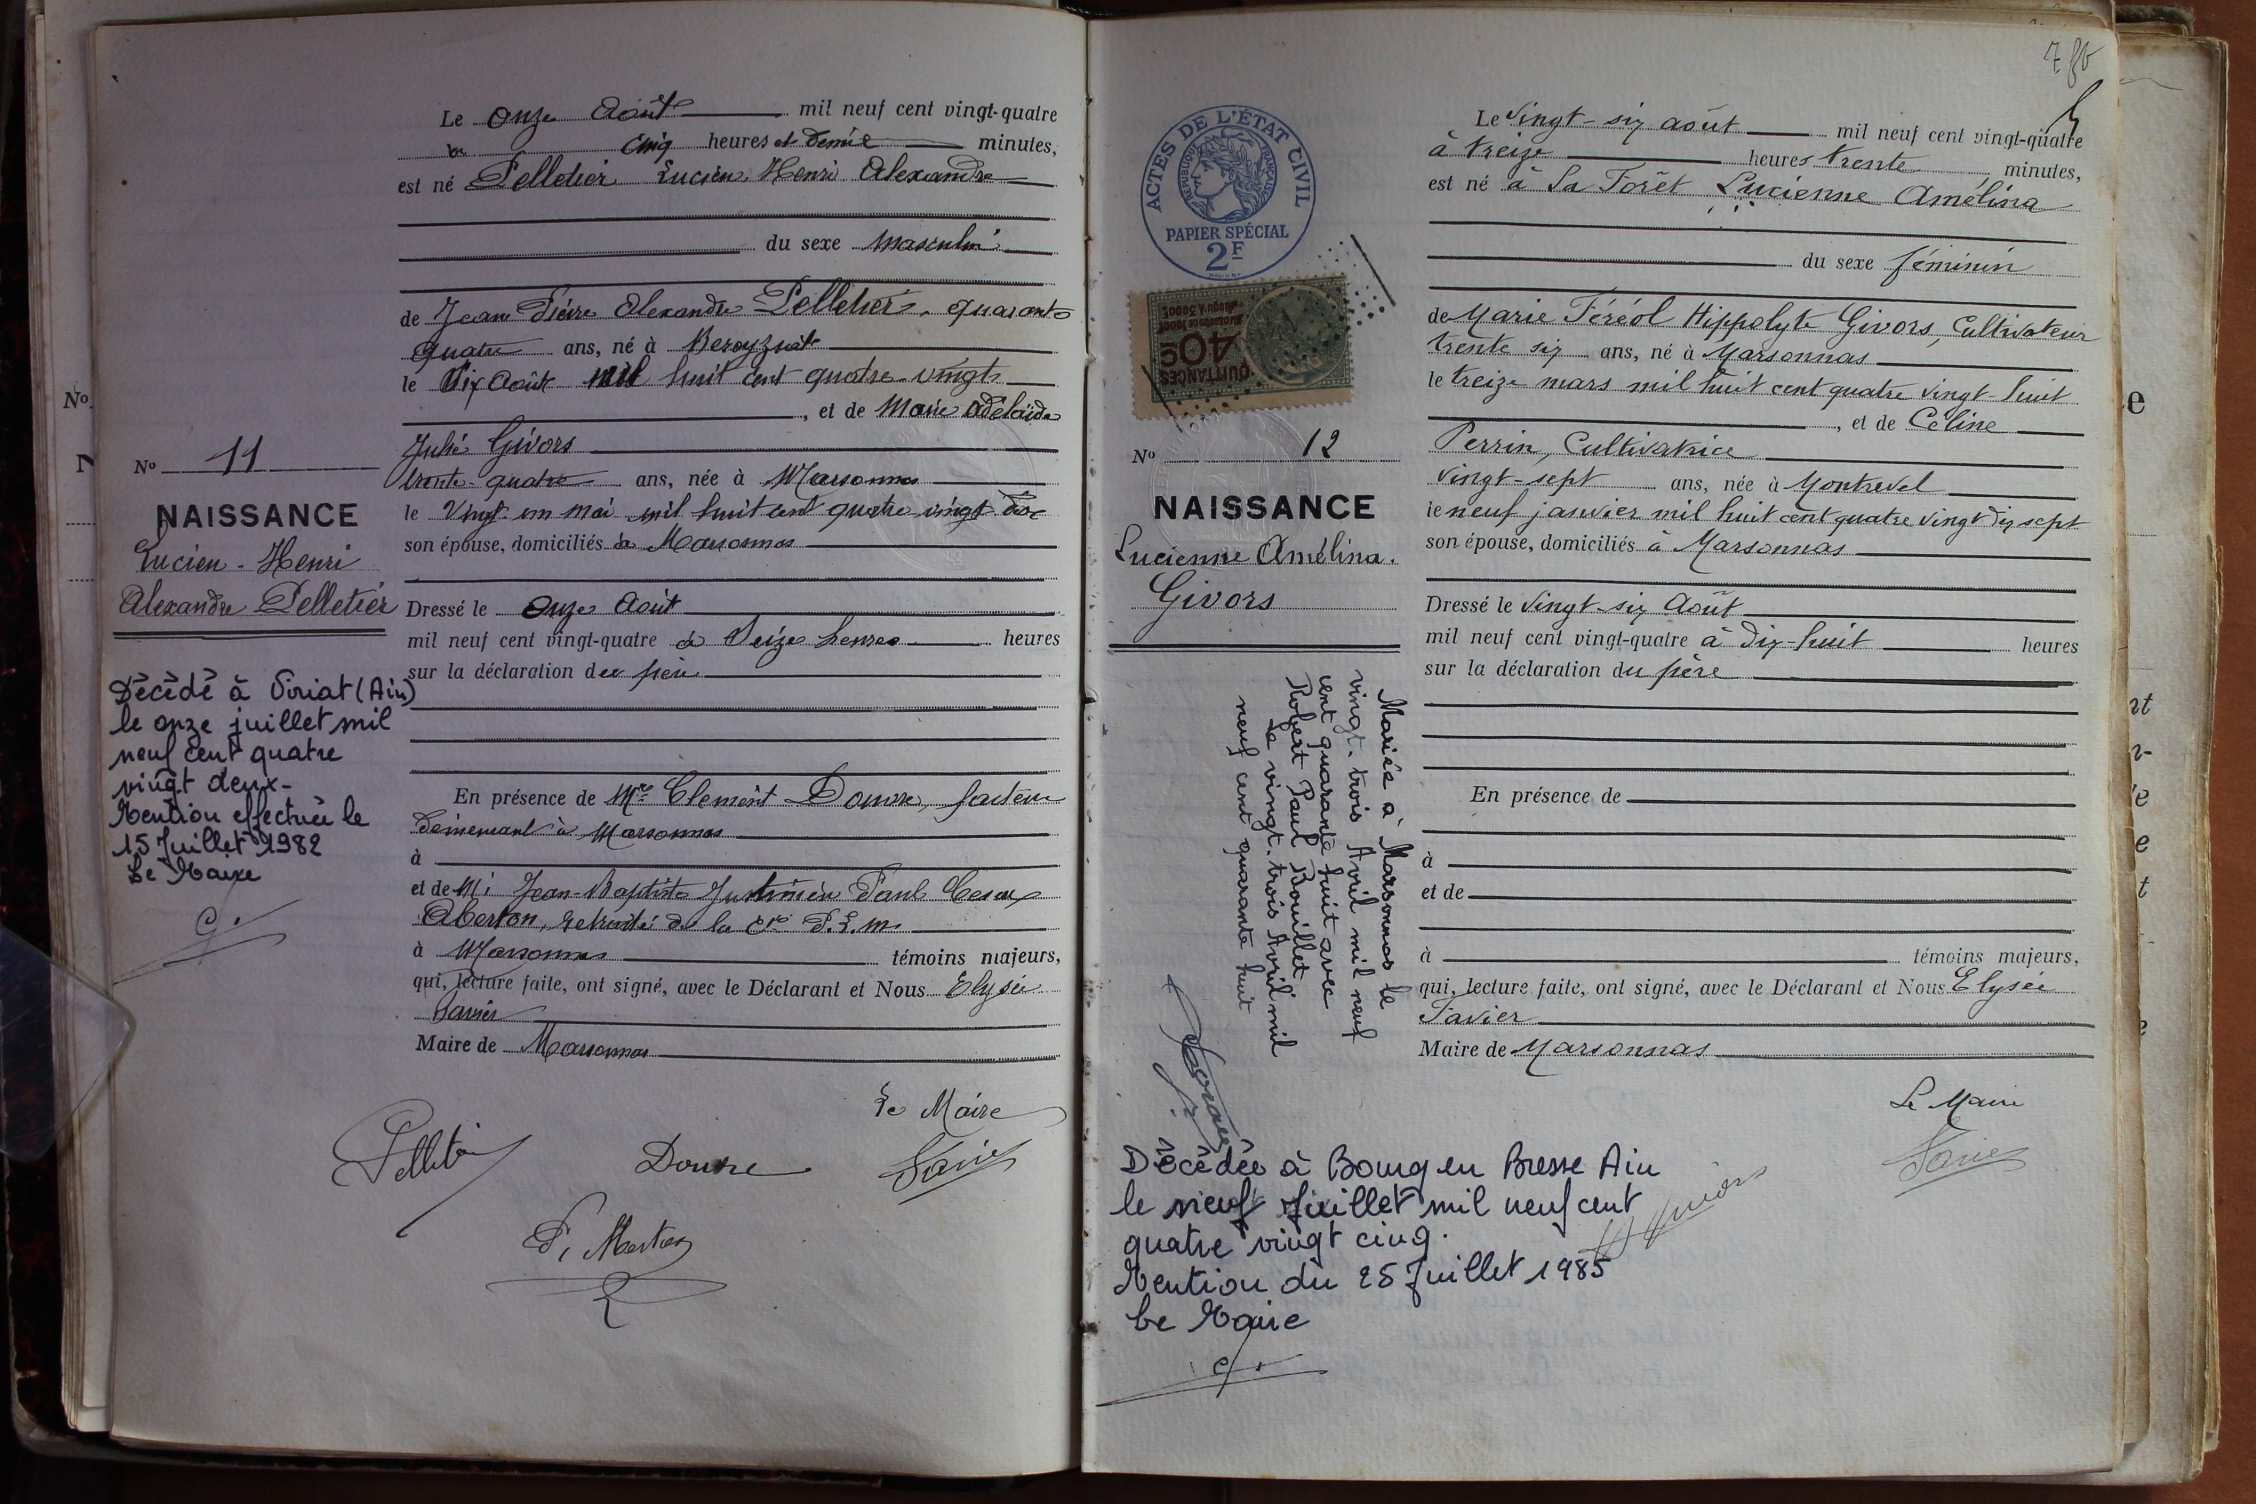 Le onze Août mil neuf cent vingt-quatre
à cinq heures et demie minutes,
est né Pelletier Lucien Henri Alexandre
du sexe masculin
de Jean Pierre Alexandre Pelletier, quarante
quatre ans, né à
le Dix Août mil huit cent quatre-vingts
, et de Marie Adélaïde
Julie Givors
trente-quatre ans, née à Marsonnas
le Vingt un mai mil huit cent quatre vingt dix
son épouse, domiciliés à Marsonnas
Dressé le onze Août
mil neuf cent vingt-quatre à Seize heures heures
sur la déclaration du père
En présence de Mr Clement Doure, facteur
demeurant à Marsonnas
à
et de Mr Jean-Baptiste Paul Cesar
retraité de la Cie P.L.M.
à Marsonnas témoins majeurs,
qui, lecture faite, ont signé, avec le Déclarant et Nous Elysée
Favier
Maire de Marsonnas
Le Maire
Pelletier Doure Favier
No 11
NAISSANCE
Lucien-Henri
Alexandre Pelletier
Décèdè à Viriat (Ain)
le onze juillet mil
neuf cent quatre
vingt deux-
Mention effectuée le
15 Juillet 1982
Le Maire
7
ACTES DE L'ÉTAT CIVIL
RÉPUBLIQUE FRANÇAISE
PAPIER SPÉCIAL
2F
QUITTANCES
40c
No 12
NAISSANCE
Lucienne Amélina.
Givors
Mariée à Marsonnas le
vingt-trois Avril mil neuf
cent quarante huit avec
Robert Paul Bouillet.
Le vingt-trois Avril mil
neuf cent quarante huit
Le vingt-six août mil neuf cent vingt-quatre
à treize heures trente minutes,
est né à La Forêt Lucienne Amélina
du sexe féminin
de Marie Féréol Hippolyte Givors, Cultivateur
trente six ans, né à Marsonnas
le treize mars mil huit cent quatre vingt-huit
, et de Céline
Perrin, Cultivatrice
vingt-sept ans, née à Montrevel
le neuf janvier mil huit cent quatre vingt dix sept
son épouse, domiciliés à Marsonnas
Dressé le vingt-six Août
mil neuf cent vingt-quatre à dix-huit heures
sur la déclaration du père
En présence de
à
et de
à témoins majeurs,
qui, lecture faite, ont signé, avec le Déclarant et Nous Elysée
Favier
Maire de Marsonnas
Le Maire
Favier
H Givors
Décédée à Bourg en Bresse Ain
le neuf Juillet mil neuf cent
quatre vingt cinq.
Mention du 25 Juillet 1985
Le Maire